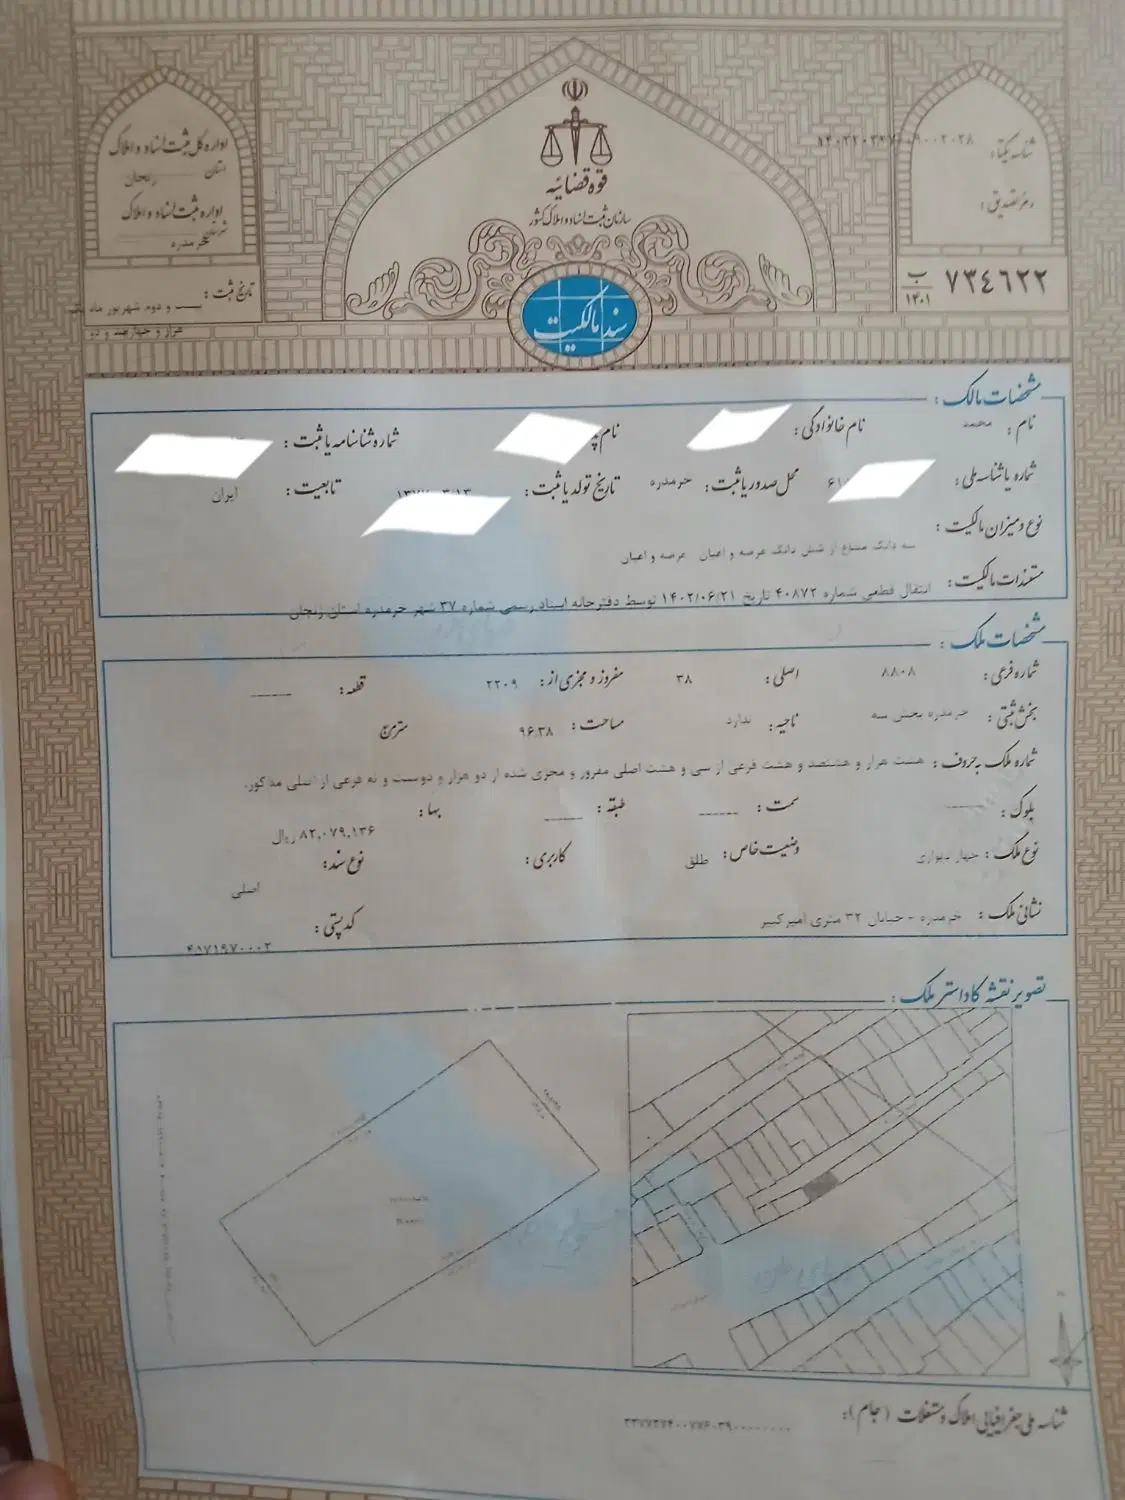 شناسه یکتا:
رمز تصدیق:
۷۳٤٦۲۲ ب ۱۴۰۱
قوه قضائیه
سازمان ثبت اسناد و املاک کشور
سند مالکیت
اداره کل ثبت اسناد و املاک
استان زنجان
اداره ثبت اسناد و املاک
شهرستان خرمدره
تاریخ ثبت: بیست و دوم شهریور ماه یک
هزار و چهارصد و دو
مشخصات مالک:
نام: محمد نام خانوادگی: نام شماره شناسنامه یا ثبت:
شماره یا شناسه ملی: محل صدور یا ثبت: خرمدره تاریخ تولد یا ثبت: تابعیت: ایران
نوع و میزان مالکیت: سه دانگ مشاع از شش دانگ عرصه و اعیان عرصه و اعیان
مستندات مالکیت: انتقال قطعی شماره ۴۰۸۷۲ تاریخ ۱۴۰۲/۰۶/۲۱ توسط دفترخانه اسناد رسمی شماره ۳۷ شهر خرمدره استان زنجان
مشخصات ملک:
شماره فرعی: ۸۸۰۸ اصلی: ۳۸ مفروز و مجزی از: ۲۲۰۹ قطعه: ـــــ
بخش ثبتی: خرمدره بخش سه ناحیه: ندارد مساحت: ۹۶.۳۸ مترمربع
شماره ملک به حروف: هشت هزار و هشتصد و هشت فرعی از سی و هشت اصلی مفروز و مجزی شده از دو هزار و دویست و نه فرعی از اصلی مذکور.
بلوک: ـــــ سمت: ـــــ طبقه: ـــــ بها: ۸۲,۰۷۹,۱۳۶ ریال
نوع ملک: چهار دیواری وضعیت خاص: طلق کاربری: نوع سند: اصلی
نشانی ملک: خرمدره - خیابان ۳۲ متری امیرکبیر کدپستی: ۴۵۷۱۹۷۰۰۰۲
تصویر نقشه کاداستر ملک:
شناسه ملی جغرافیایی املاک و مستغلات (جام):